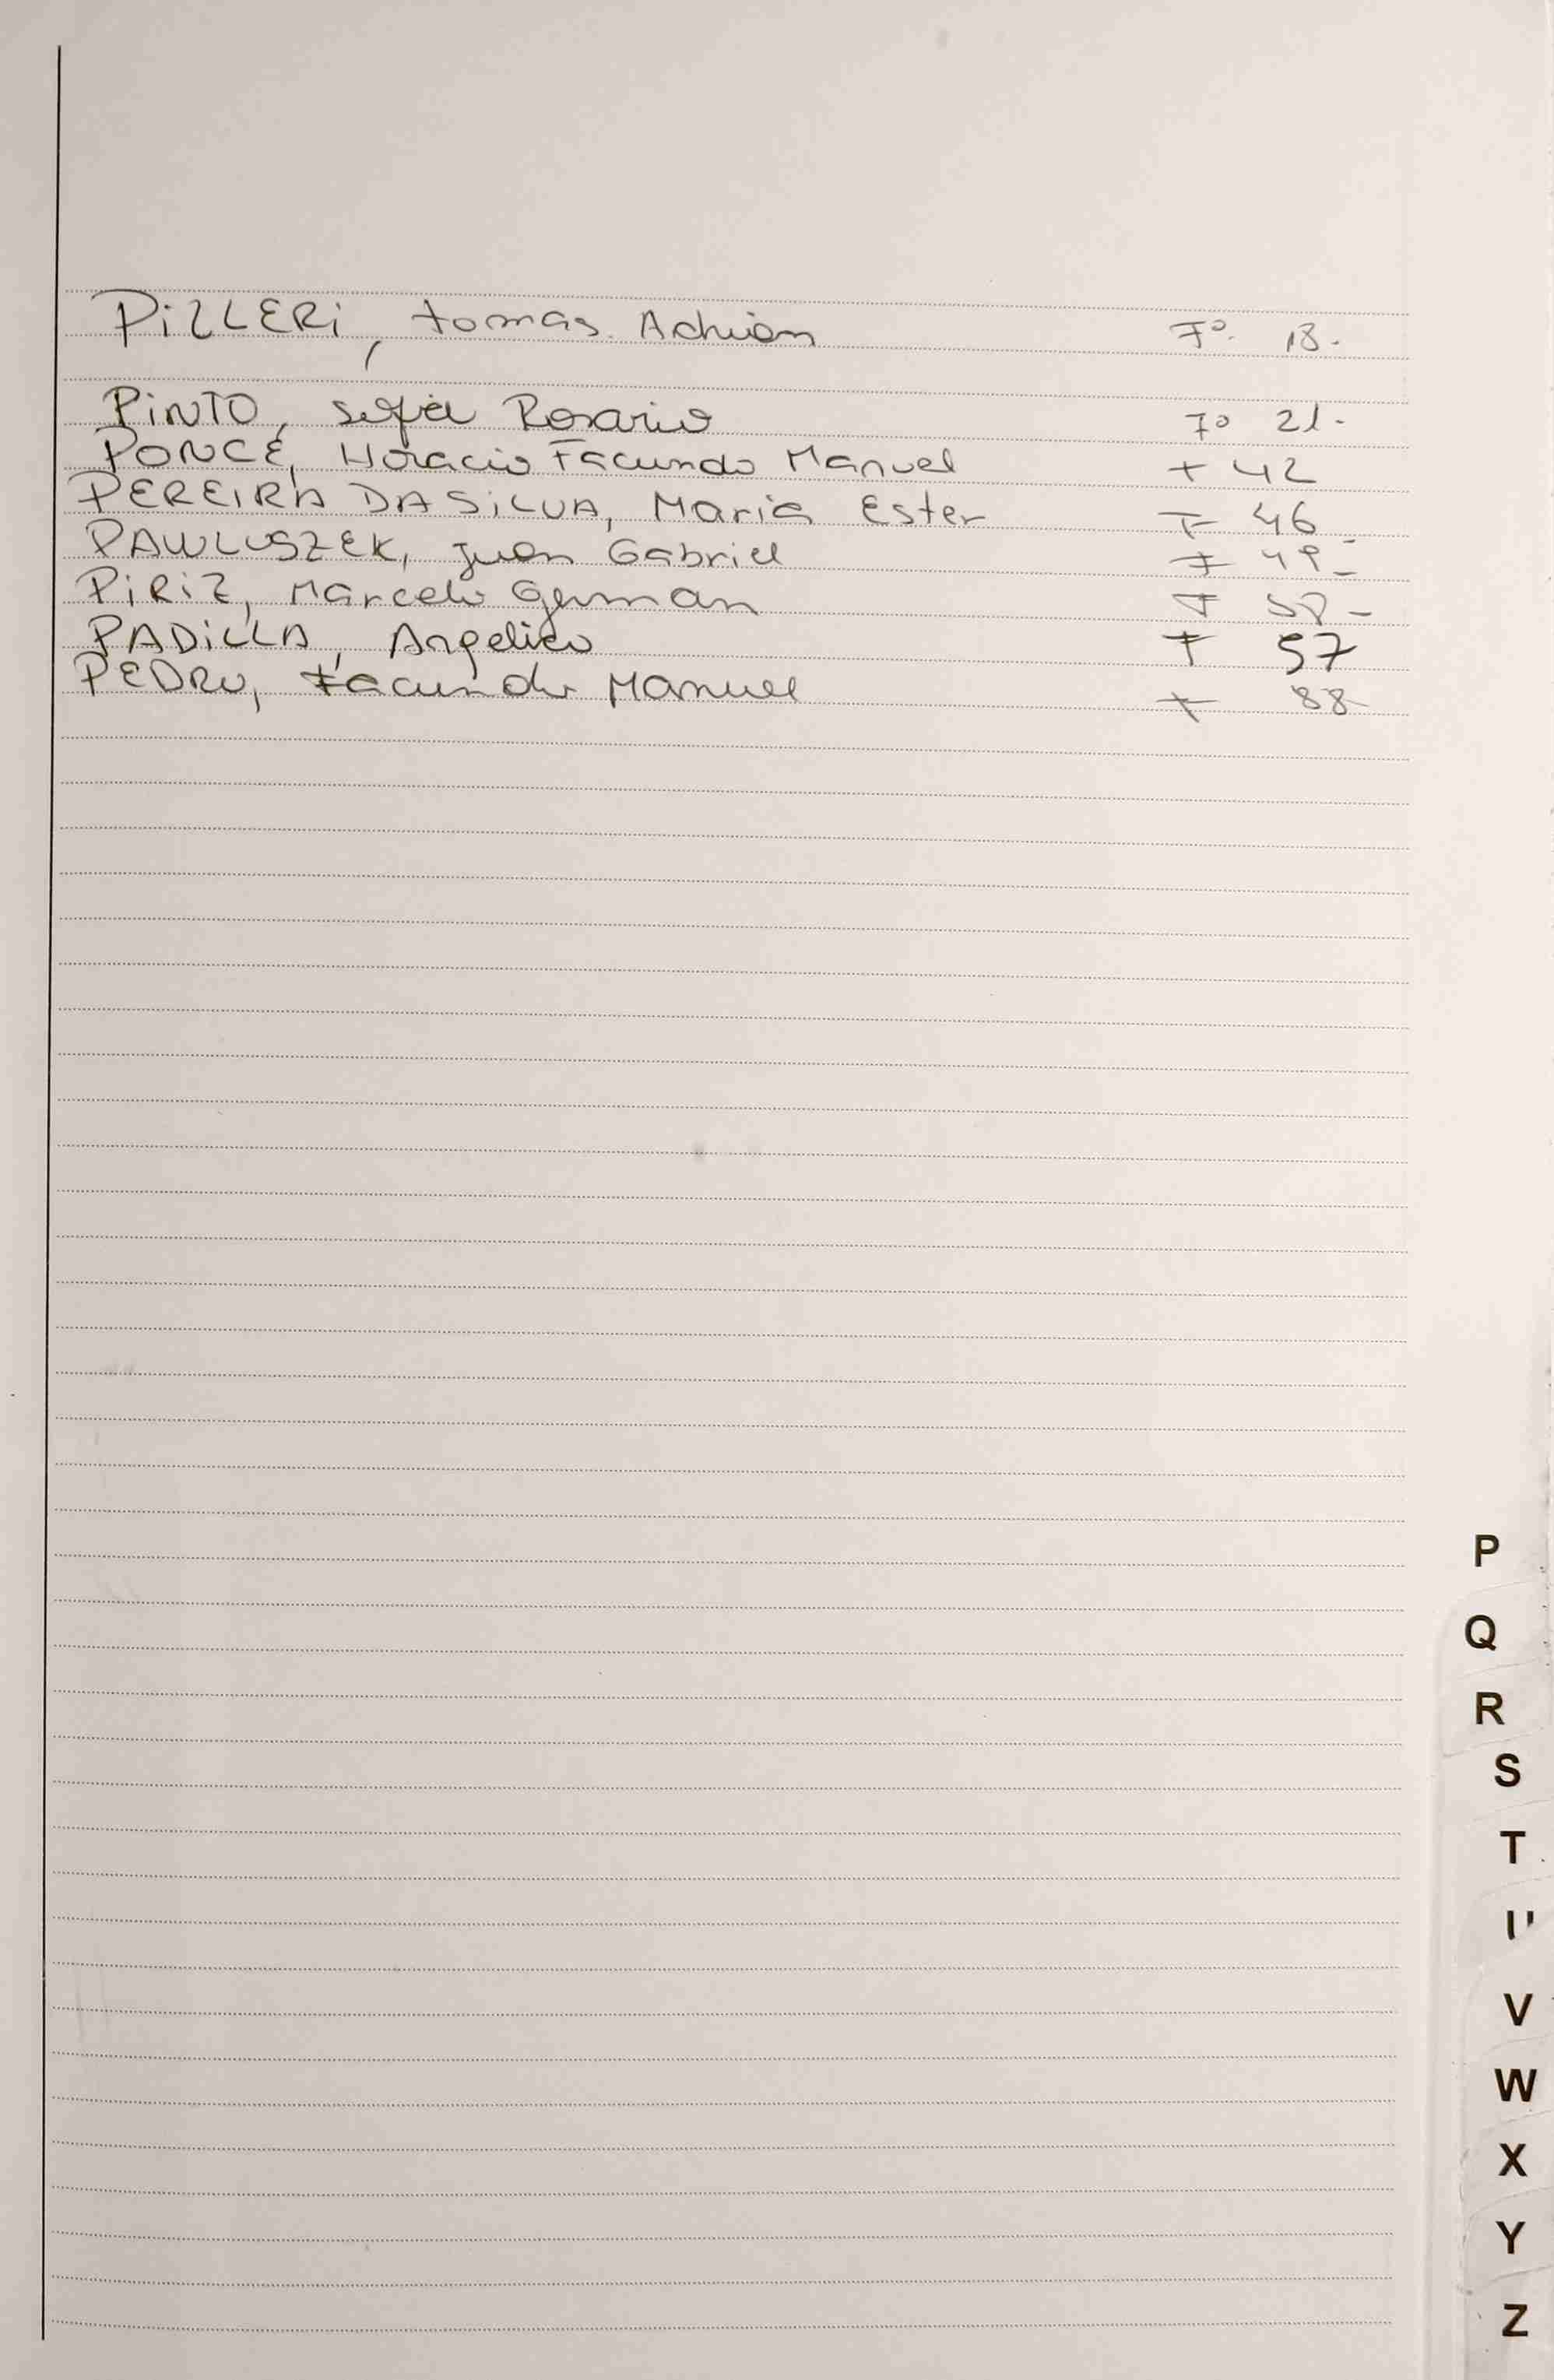 PiZLERi, tomas. Adrian Fº. 18.
PiNTO, sofia Rosario Fº 21.
PONCE, Horacio Facundo Manuel F 42
PEREIRA DA SiLVA, Maria Ester F 46
PAWLUSZEK, Juan Gabriel F 49
PiRiZ, Marcelo German F
PADiLLA, Angelica F 57
PEDRO, Facundo Manuel F 88
P
Q
R
S
T
V
W
X
Y
Z